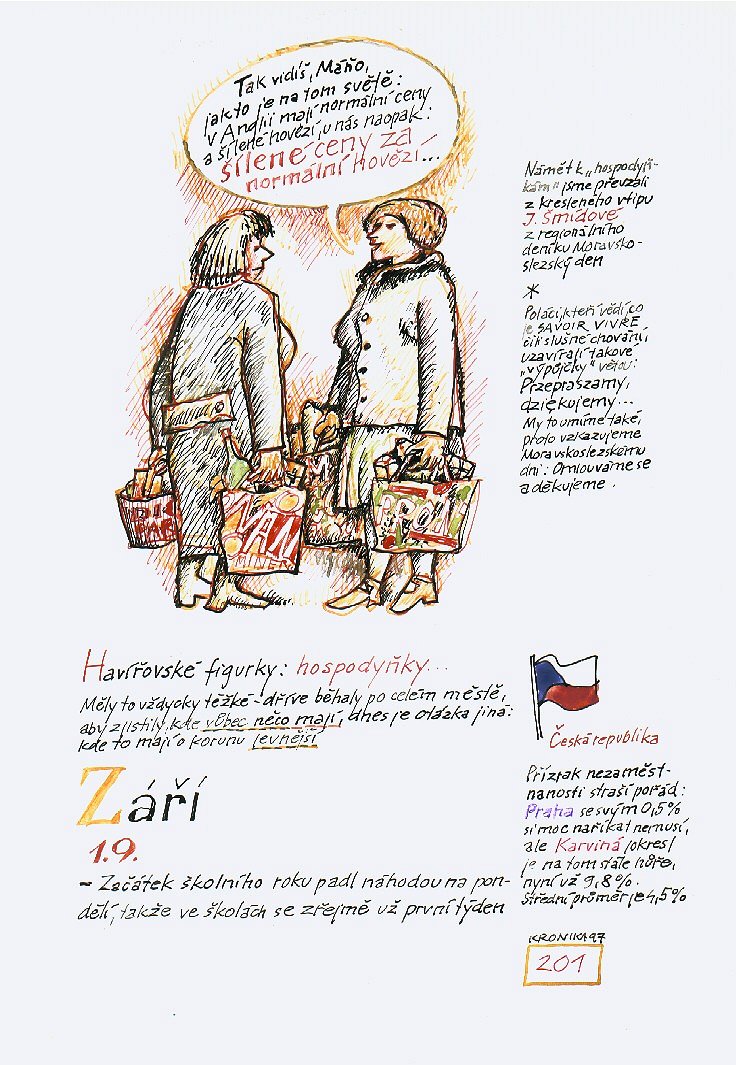 Tak vidíš, Máňo,
jak to je na tom světě:
v Anglii mají normální ceny
a šílené hovězí, u nás naopak:
šílené ceny za
normální hovězí...
Námět k „hospodyň-
kám" jsme převzali
z kresleného vtipu
J. Šmídové
z regionálního
deníku Moravsko-
slezský den
*
Poláci, kteří vědí, co
je SAVOIR VIVRE
čili slušné chování,
uzavírají takové
„výpůjčky" větou:
Przepraszamy,
dziękujemy...
My to umíme také,
proto vzkazujeme
Moravskoslezskému
dni: Omlouváme se
a děkujeme.
Havířovské figurky: hospodyňky...
Měly to vždycky těžké - dříve běhaly po celém městě,
aby zjistily, kde vůbec něco mají, dnes je otázka jiná:
kde to mají o korunu levnější
Září
1.9.
- Začátek školního roku padl náhodou na pon-
dělí, takže ve školách se zřejmě už první týden
Česká republika
Přízrak nezaměst-
nanosti straší pořád:
Praha se svým 0,5%
si moc naříkat nemusí,
ale Karviná /okres/
je na tom stále hůře,
nyní už 9,8%.
Střední průměr je 4,5%
KRONIKA 97
201